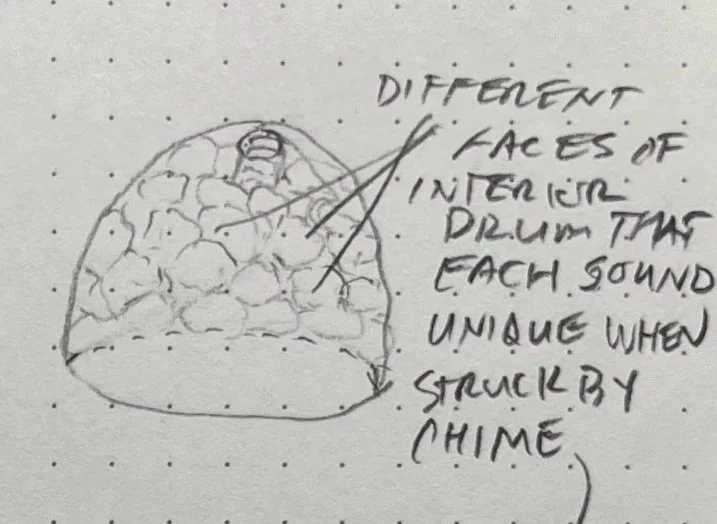 DIFFERENT
FACES OF
INTERIOR
DRUM THAT
EACH SOUND
UNIQUE WHEN
STRUCK BY
CHIME